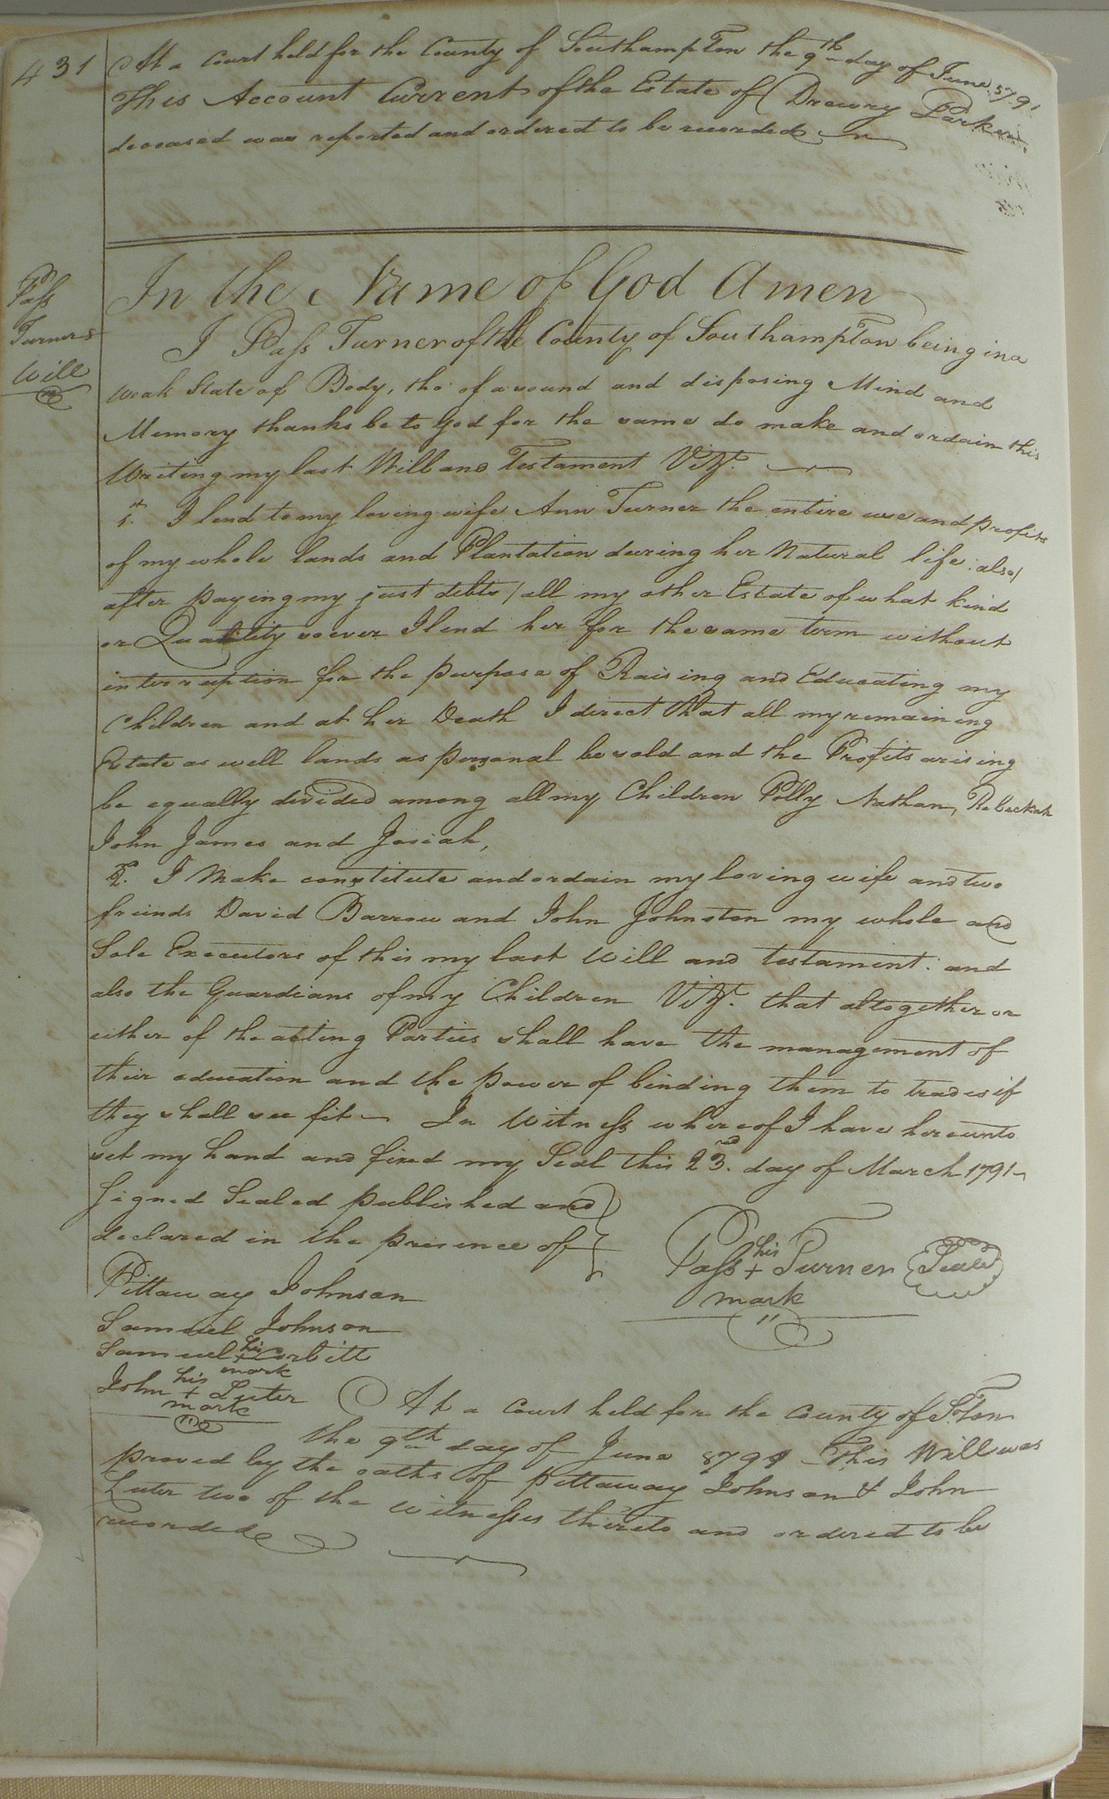 431
At a Court held for the County of Southampton the 9th day of June 1791
This Account Current of the Estate of Drewry Parker,
deceased was reported and ordered to be recorded
Pass
Turners
Will
In the Name of God Amen
I Pass Turner of the County of Southampton being in a
weak State of Body, tho' of a sound and disposing Mind and
Memory thanks be to God for the same do make and ordain this
Writing my last Will and Testament Vizt.
1st. I lend to my loving wife Ann Turner the entire use and profits
of my whole lands and Plantation during her Natural life. also /
after paying my just debts / all my other Estate of what kind
or Quality soever I lend her for the same term without
interruption for the purpose of Raising and Educating my
Children and at her Death I direct that all my remaining
Estate as well lands as personal be sold and the Profits arising
be equally divided among all my Children Polly Nathan, Rebeckah
John James and Josiah,
2. I Make constitute and ordain my loving wife and two
friends David Barrow and John Johnston my whole and
Sole Executors of this my last Will and testament: and
also the Guardians of my Children Vizt. that altogether or
either of the acting Parties shall have the management of
their education and the power of binding them to trades if
they shall see fit In Witness whereof I have hereunto
set my hand and fixed my Seal this 23rd. day of March 1791
Signed Sealed published and
declared in the presence of
Pass his + Turner Seal
mark
Pittaway Johnson
Samuel Johnson
Samuel his + Corbitt
mark
John his + Luter
mark
At a Court held for the County of S.ton
the 9th day of June 1791 This Will was
proved by the oaths of Pittaway Johnson & John
Luter two of the witnesses thereto and ordered to be
recorded